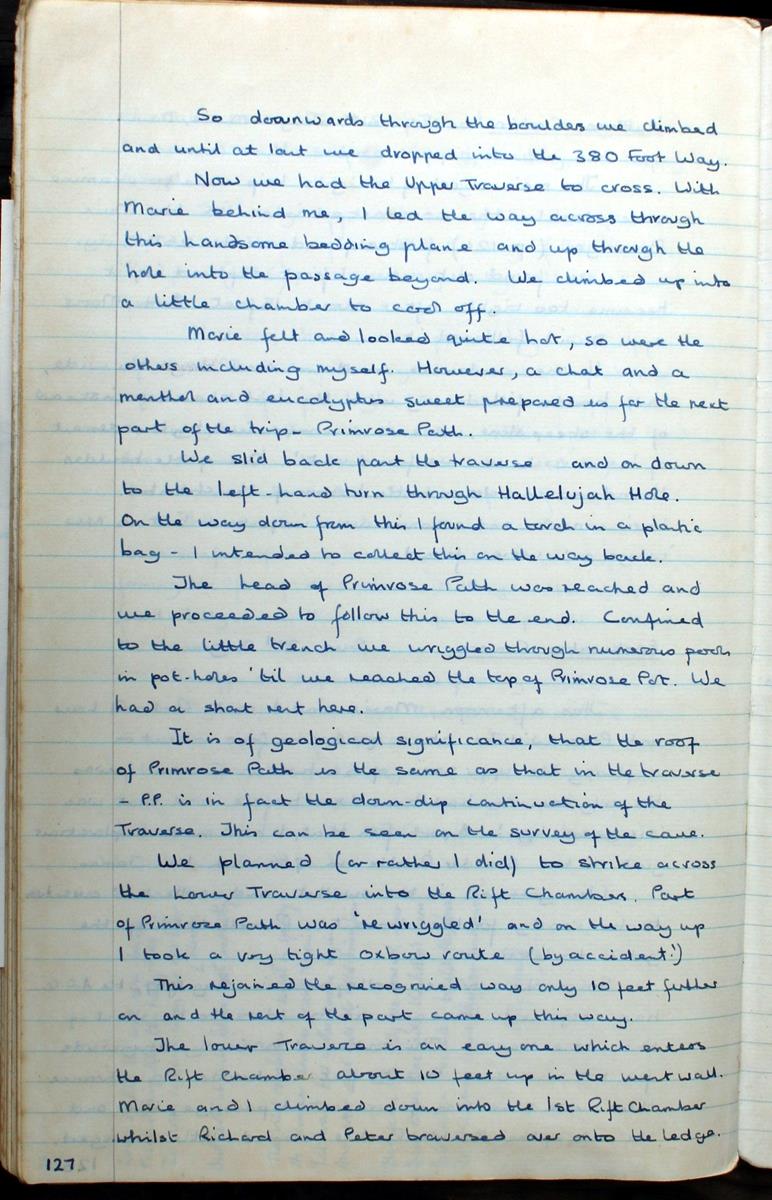 So downwards through the boulders we climbed
and until at last we dropped into the 380 Foot Way.
Now we had the Upper Traverse to cross. With
Marie behind me, I led the way across through
this handsome bedding plane and up through the
hole into the passage beyond. We climbed up into
a little chamber to cool off.
Marie felt and looked quite hot, so were the
others including myself. However, a chat and a
menthol and eucalyptus sweet prepared us for the next
part of the trip - Primrose Path.
We slid back past the traverse and on down
to the left-hand turn through Hallelujah Hole.
On the way down from this I found a torch in a plastic
bag - I intended to collect this on the way back.
The head of Primrose Path was reached and
we proceeded to follow this to the end. Confined
to the little trench we wriggled through numerous pools
in pot-holes 'til we reached the top of Primrose Pot. We
had a short rest here.
It is of geological significance, that the roof
of Primrose Path is the same as that in the traverse
- P.P. is in fact the down-dip continuation of the
Traverse. This can be seen on the survey of the cave.
We planned (or rather I did) to strike across
the Lower Traverse into the Rift Chambers. Part
of Primrose Path was 'rewriggled' and on the way up
I took a very tight oxbow route (by accident!)
This rejoined the recognised way only 10 feet further
on and the rest of the part came up this way.
The lower Traverse is an easy one which enters
the Rift Chamber about 10 feet up in the west wall.
Marie and I climbed down into the 1st Rift Chamber
whilst Richard and Peter traversed over onto the ledge.
127